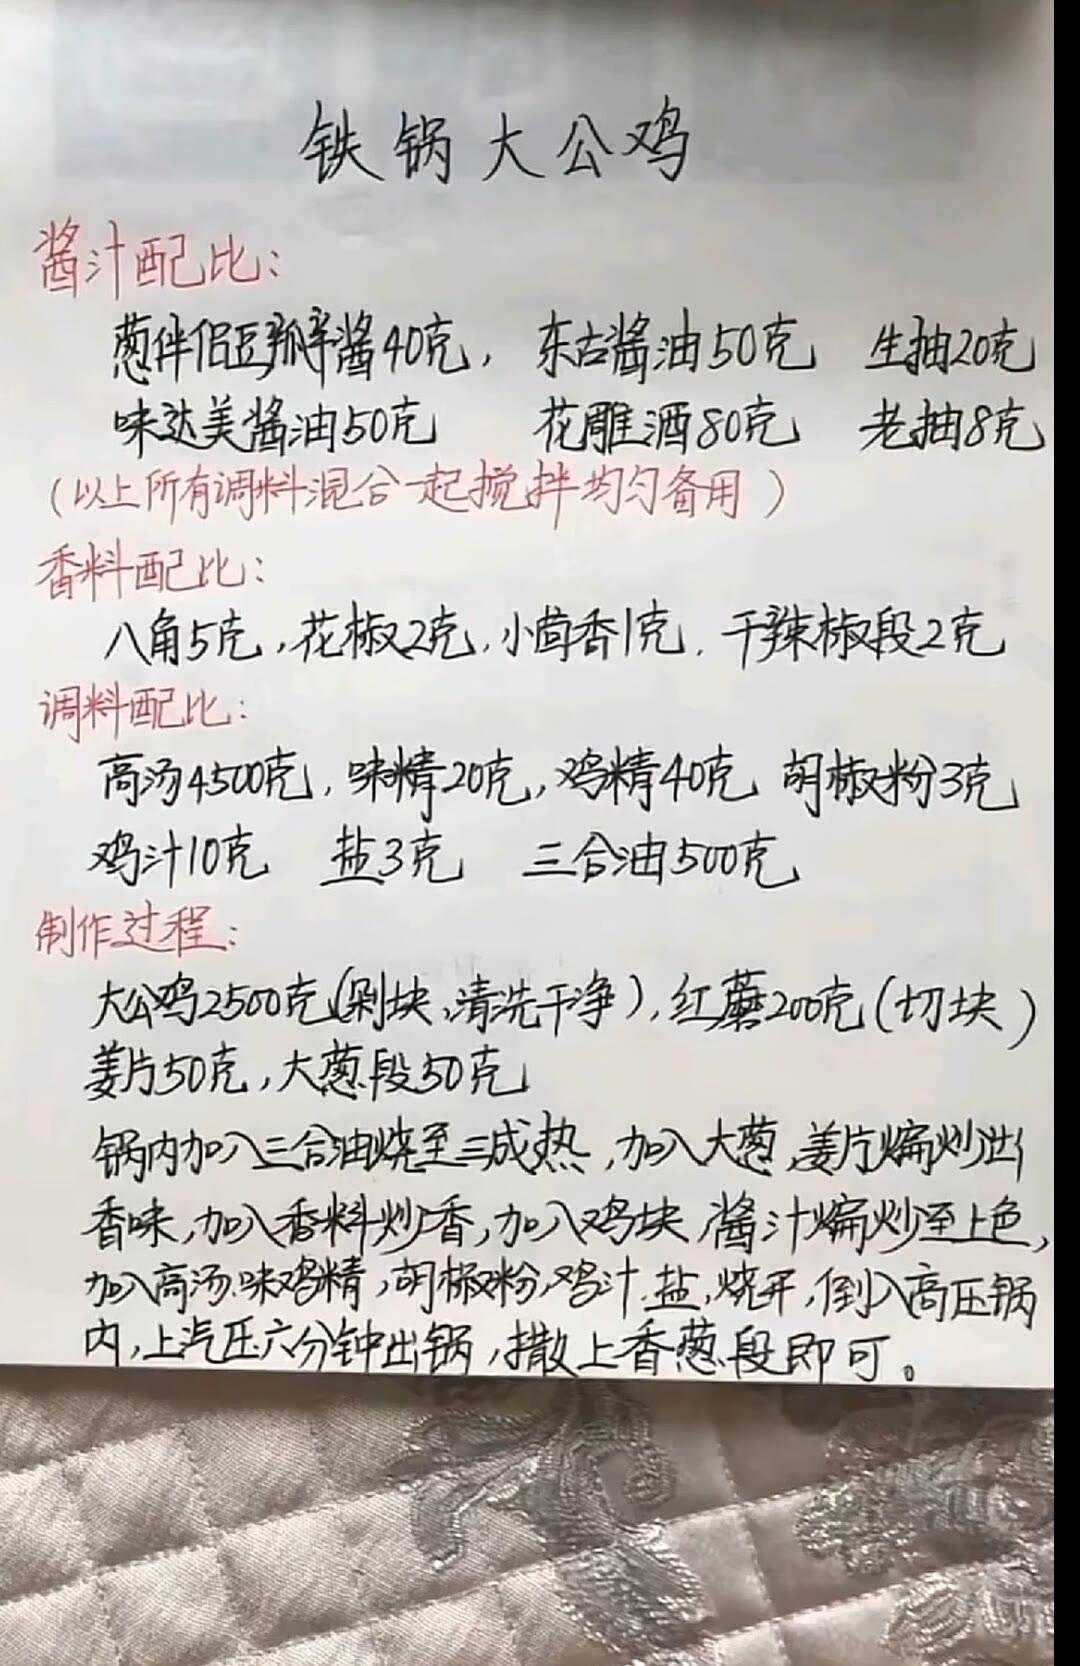 铁锅大公鸡
酱汁配比：
葱伴侣豆瓣酱40克，东古酱油50克 生抽20克
味达美酱油50克 花雕酒80克 老抽8克
（以上所有调料混合一起搅拌均匀备用）
香料配比：
八角5克，花椒2克，小茴香1克，干辣椒段2克
调料配比：
高汤4500克，味精20克，鸡精40克 胡椒粉3克
鸡汁10克 盐3克 三合油500克
制作过程：
大公鸡2500克（剁块，清洗干净），红蘑200克（切块）
姜片50克，大葱段50克
锅内加入三合油烧至三成热，加入大葱，姜片煸炒出
香味，加入香料炒香，加入鸡块，酱汁煸炒至上色，
加入高汤.味鸡精，胡椒粉，鸡汁.盐，烧开，倒入高压锅
内，上汽压六分钟出锅，撒上香葱段即可。